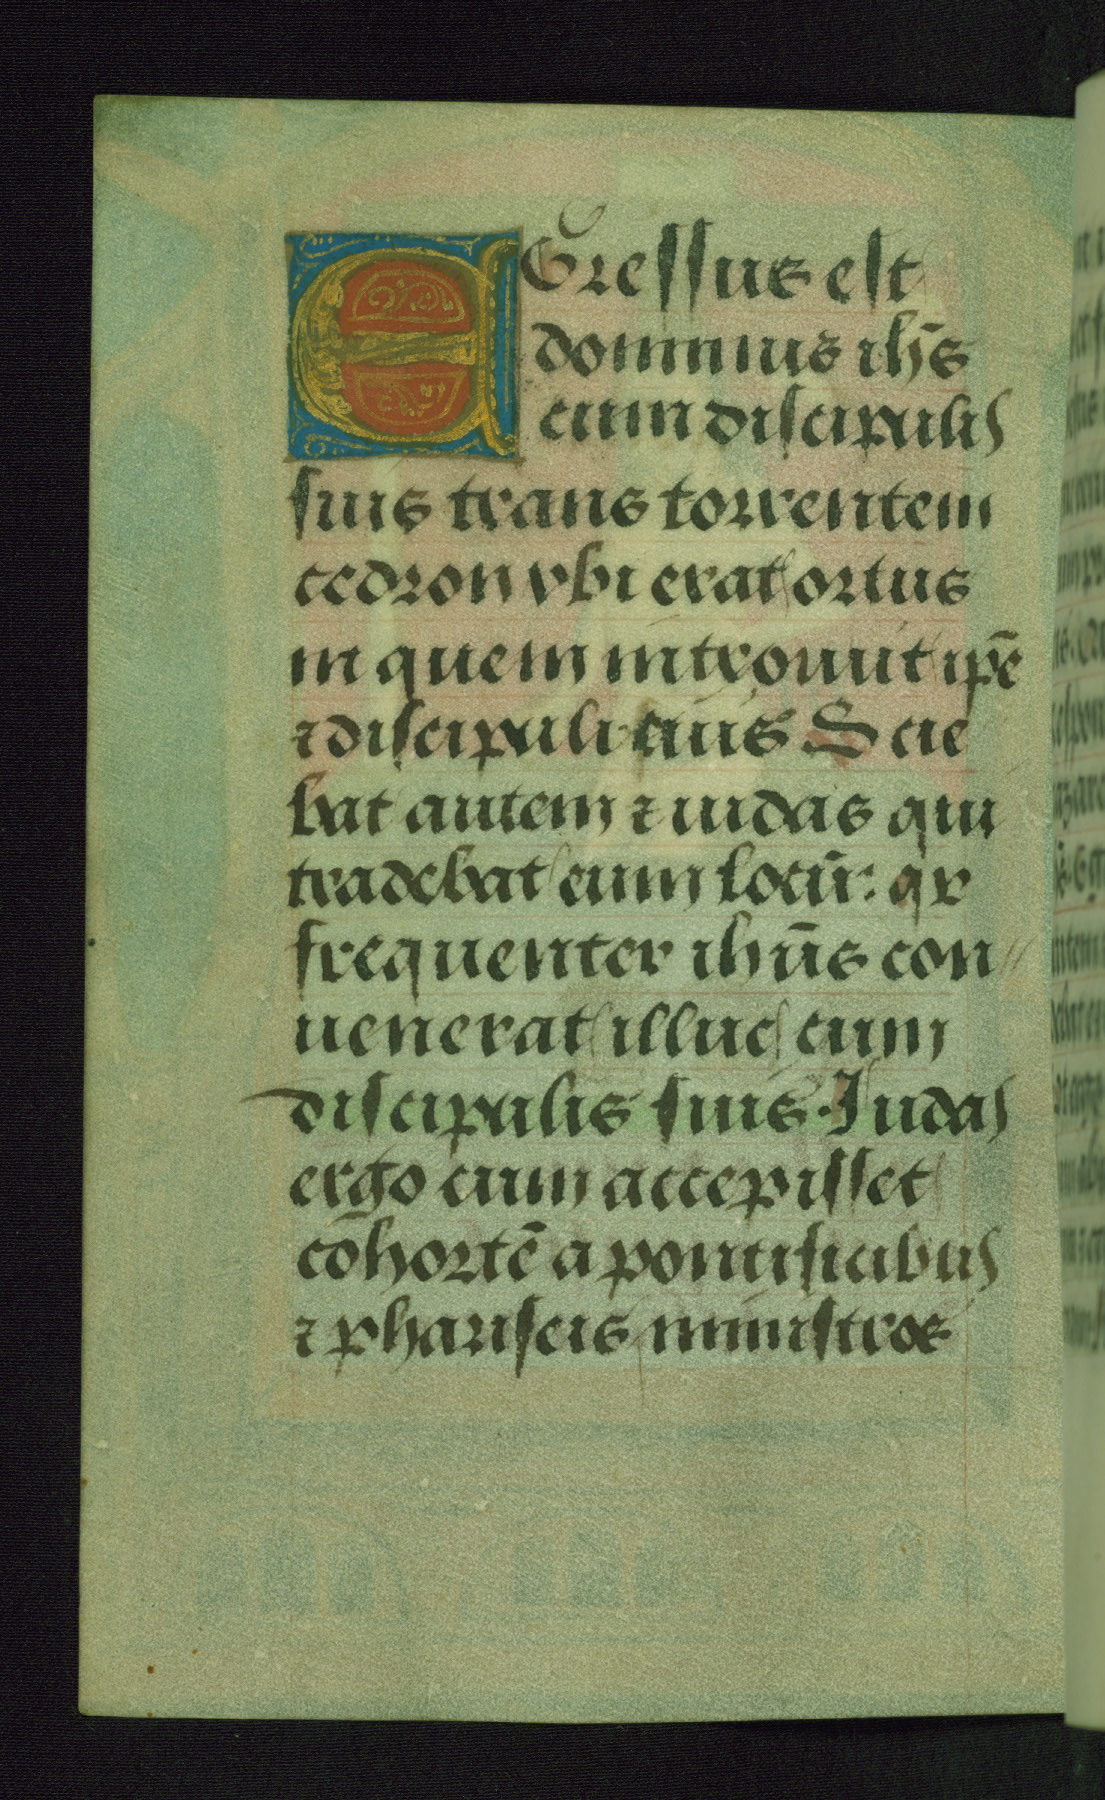 EGressus est
dominus ihs̄
cum discipulis
suis trans torrentem
cedron vbi erat ortus
in quem introiuit ip̄e
⁊ discipuli eius Scie
bat autem ⁊ iudas qui
tradebat eum locū: qr
frequenter ihūs con〃
uenerat illuc cum
discipulis suis. Iudas
ergo cum accepisset
cōhortē a pontificibus
⁊ phariseis ministros